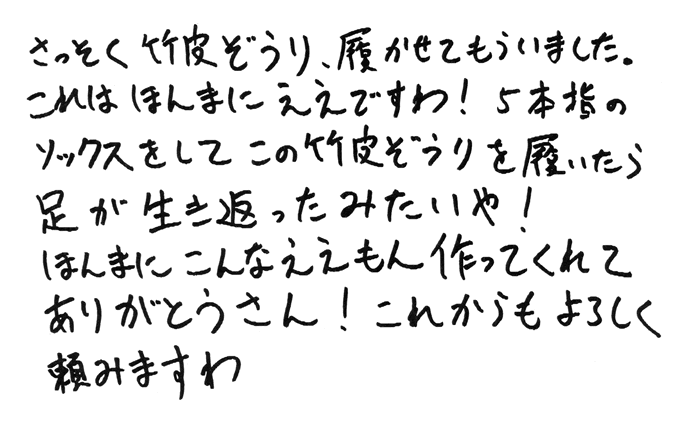 さっそく竹皮ぞうり、履かせてもういました。
これはほんまにええですわ！5本指の
ソックスをしてこの竹皮ぞうりを履いたら
足が生き返ったみたいや！
ほんまにこんなええもん作ってくれて
ありがとうさん！これからもよろしく
頼みますわ